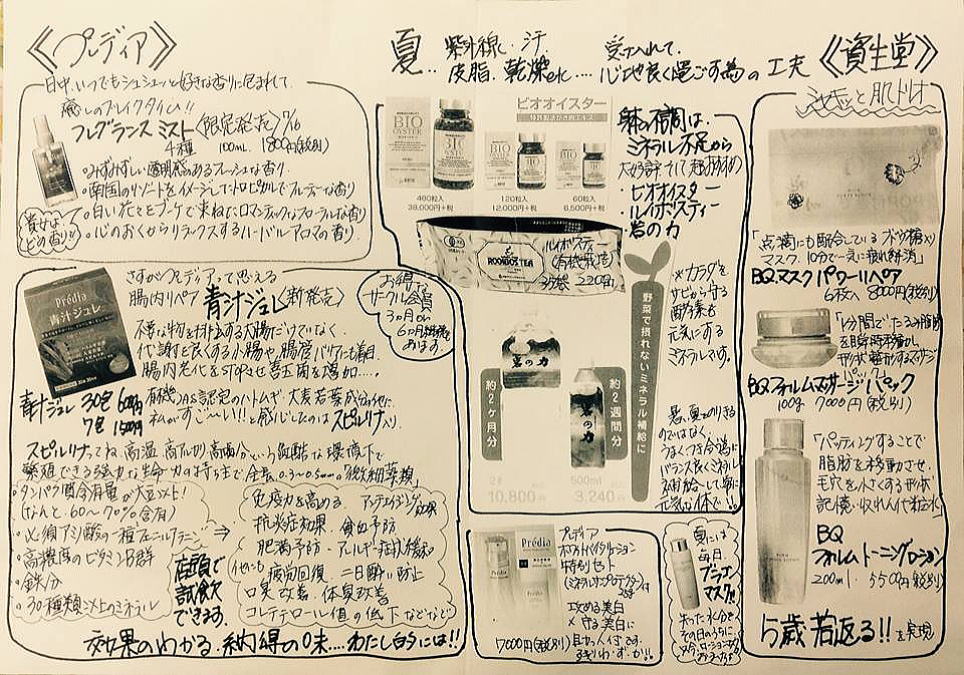 《プレディア》
日中、いつでもシュシュッと好きな香りに包まれて
癒しのブレイクタイム!!
フレグランスミスト〈限定発売〉7/16
4種 100mL 1800円(税別)
・みずみずしい透明感のあるフレッシュな香り
・南国のリゾートをイメージしてトロピカルでフルーティーな香り
・白い花々をブーケで束ねたロマンティックなフローラルな香り
・心のおくからリラックスするハーバルアロマの香り
貴女は
どの香り?
夏‥ 紫外線、汗、
皮脂、乾燥etc‥‥
受け入れて、
心地良く過ごす為の工夫
《資生堂》
BIO
OYSTER
ビオオイスター
480粒入
38,000円+税
120粒入
12,000円+税
60粒入
6,500円+税
体の不調は、
ミネラル不足から
・ビオオイスター
・ルイボスティー
・岩の力
ROOIBOS TEA
ルイボスティー
(有機栽培)
※カラダを
サビから守る
酵素も
元気にする
ミネラルです。
野菜で摂れないミネラル補給に
岩の力
岩の力
約2ヶ月分
約2週間分
2ℓ
10,800円
500ml
3,240円
暑い夏をのりきる
のではなく、
うまくつき合う為に
バランス良くミネラル
補給して
元気な体で!!
さすがプレディアって思える
腸内リペア 青汁ジュレ〈新発売〉
Prédia
青汁ジュレ
お得な
サークル会員
3ヶ月or
6ヶ月継続も
あります。
不要な物を排出する大腸だけでなく、
代謝を良くする小腸や、腸管バリアにも着目。
腸内老化をSTOPさせ善玉菌を増加‥‥
有機JAS認定のハトムギ、大麦若葉
私がすご〜い!!と感じたのはスピルリナ入り。
青汁ジュレ 30包
7包 1500円
スピルリナってね 高温、高アルカリ、高塩分という
繁殖できる強力な生命力の持ちまで 全長0.3〜0.5mmの「微細藻類」
・タンパク質含有量が大豆以上!
(なんと、60〜70%含有)
・必須アミノ酸の一種フェニルアラニン
・高濃度のビタミンB群
・鉄分
・30種類以上のミネラル
⇒
店頭で
試飲
できます。
免疫力を高める アンチエイジング効果
抗炎症効果 貧血予防
肥満予防・アレルギー症状緩和
他にも
疲労回復、二日酔い防止
口臭改善、体臭改善
コレステロール値の低下などなど
効果のわかる、納得の味‥‥わたし的には!!
Prédia
プレディア
特別セット
攻める美白
×守る美白に
7000円(税別)
残りわずか!!
夏には
毎日、
失った水分を
その日のうちに、
「点滴にも配合しているブドウ糖入り
マスク。10分で一気に疲れ解消」
BQ.マスクパワーリペア
6枚入 8000円(税別)
BQ フォルムマッサージパック
100g 7000円(税別)
「パッティングすることで
脂肪を移動させ、
毛穴を小さくする形状
記憶・収れん化粧水」
BQ
フォルムトーニングローション
200ml. 5500円(税別)
5歳若返る!!を実現